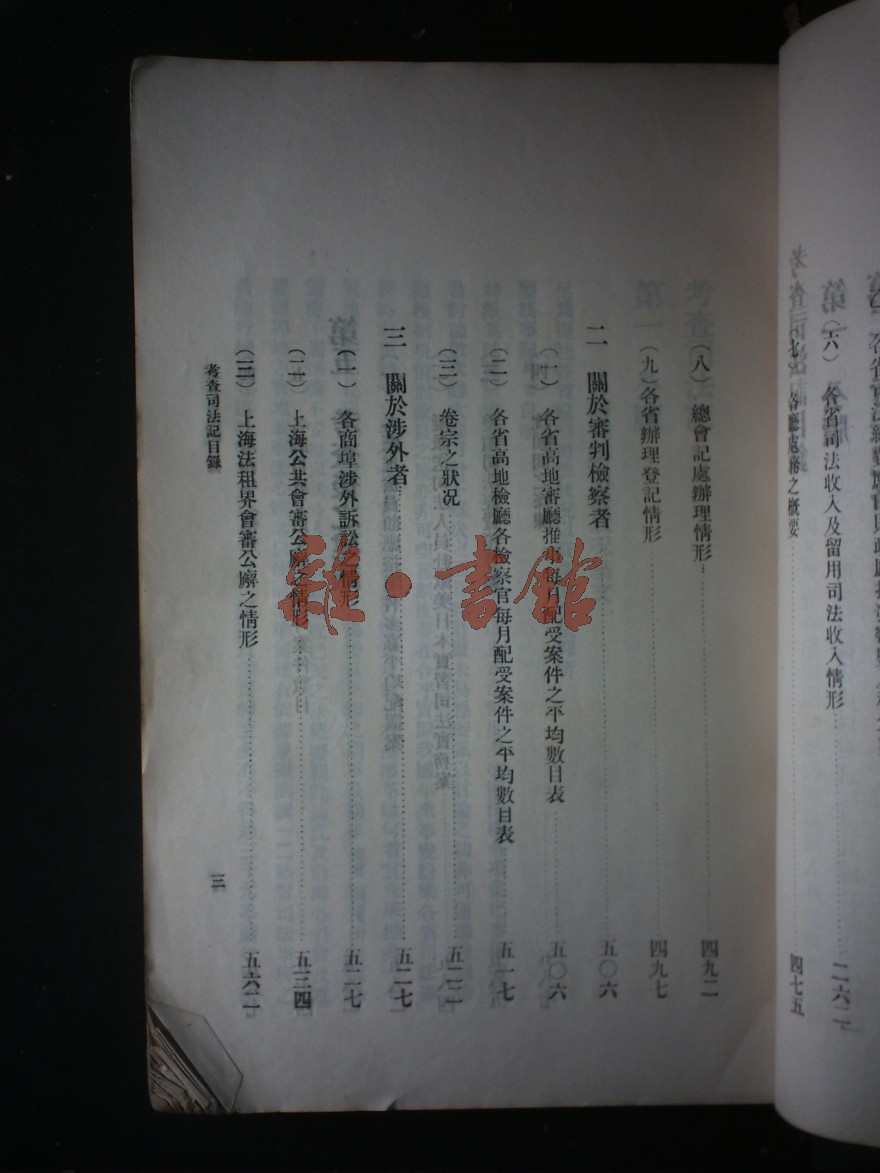 (六) 各省司法收入及留用司法收入情形……二六二
各廳處務之概要……四七五
(八) 總會記處辦理情形……四九二
(九) 各省辦理登記情形……四九七
二 關於審判檢察者……五〇六
(一) 各省高地審廳推事每月配受案件之平均數目表……五〇六
(二) 各省高地檢廳各檢察官每月配受案件之平均數目表……五一七
(三) 卷宗之狀况……五二二
三 關於涉外者……五二七
(一) 各商埠涉外訴訟之情形……五二七
(二) 上海公共會審公廨之情形……五三四
(三) 上海法租界會審公廨之情形……五六二
考查司法記目錄
三
雜·書館